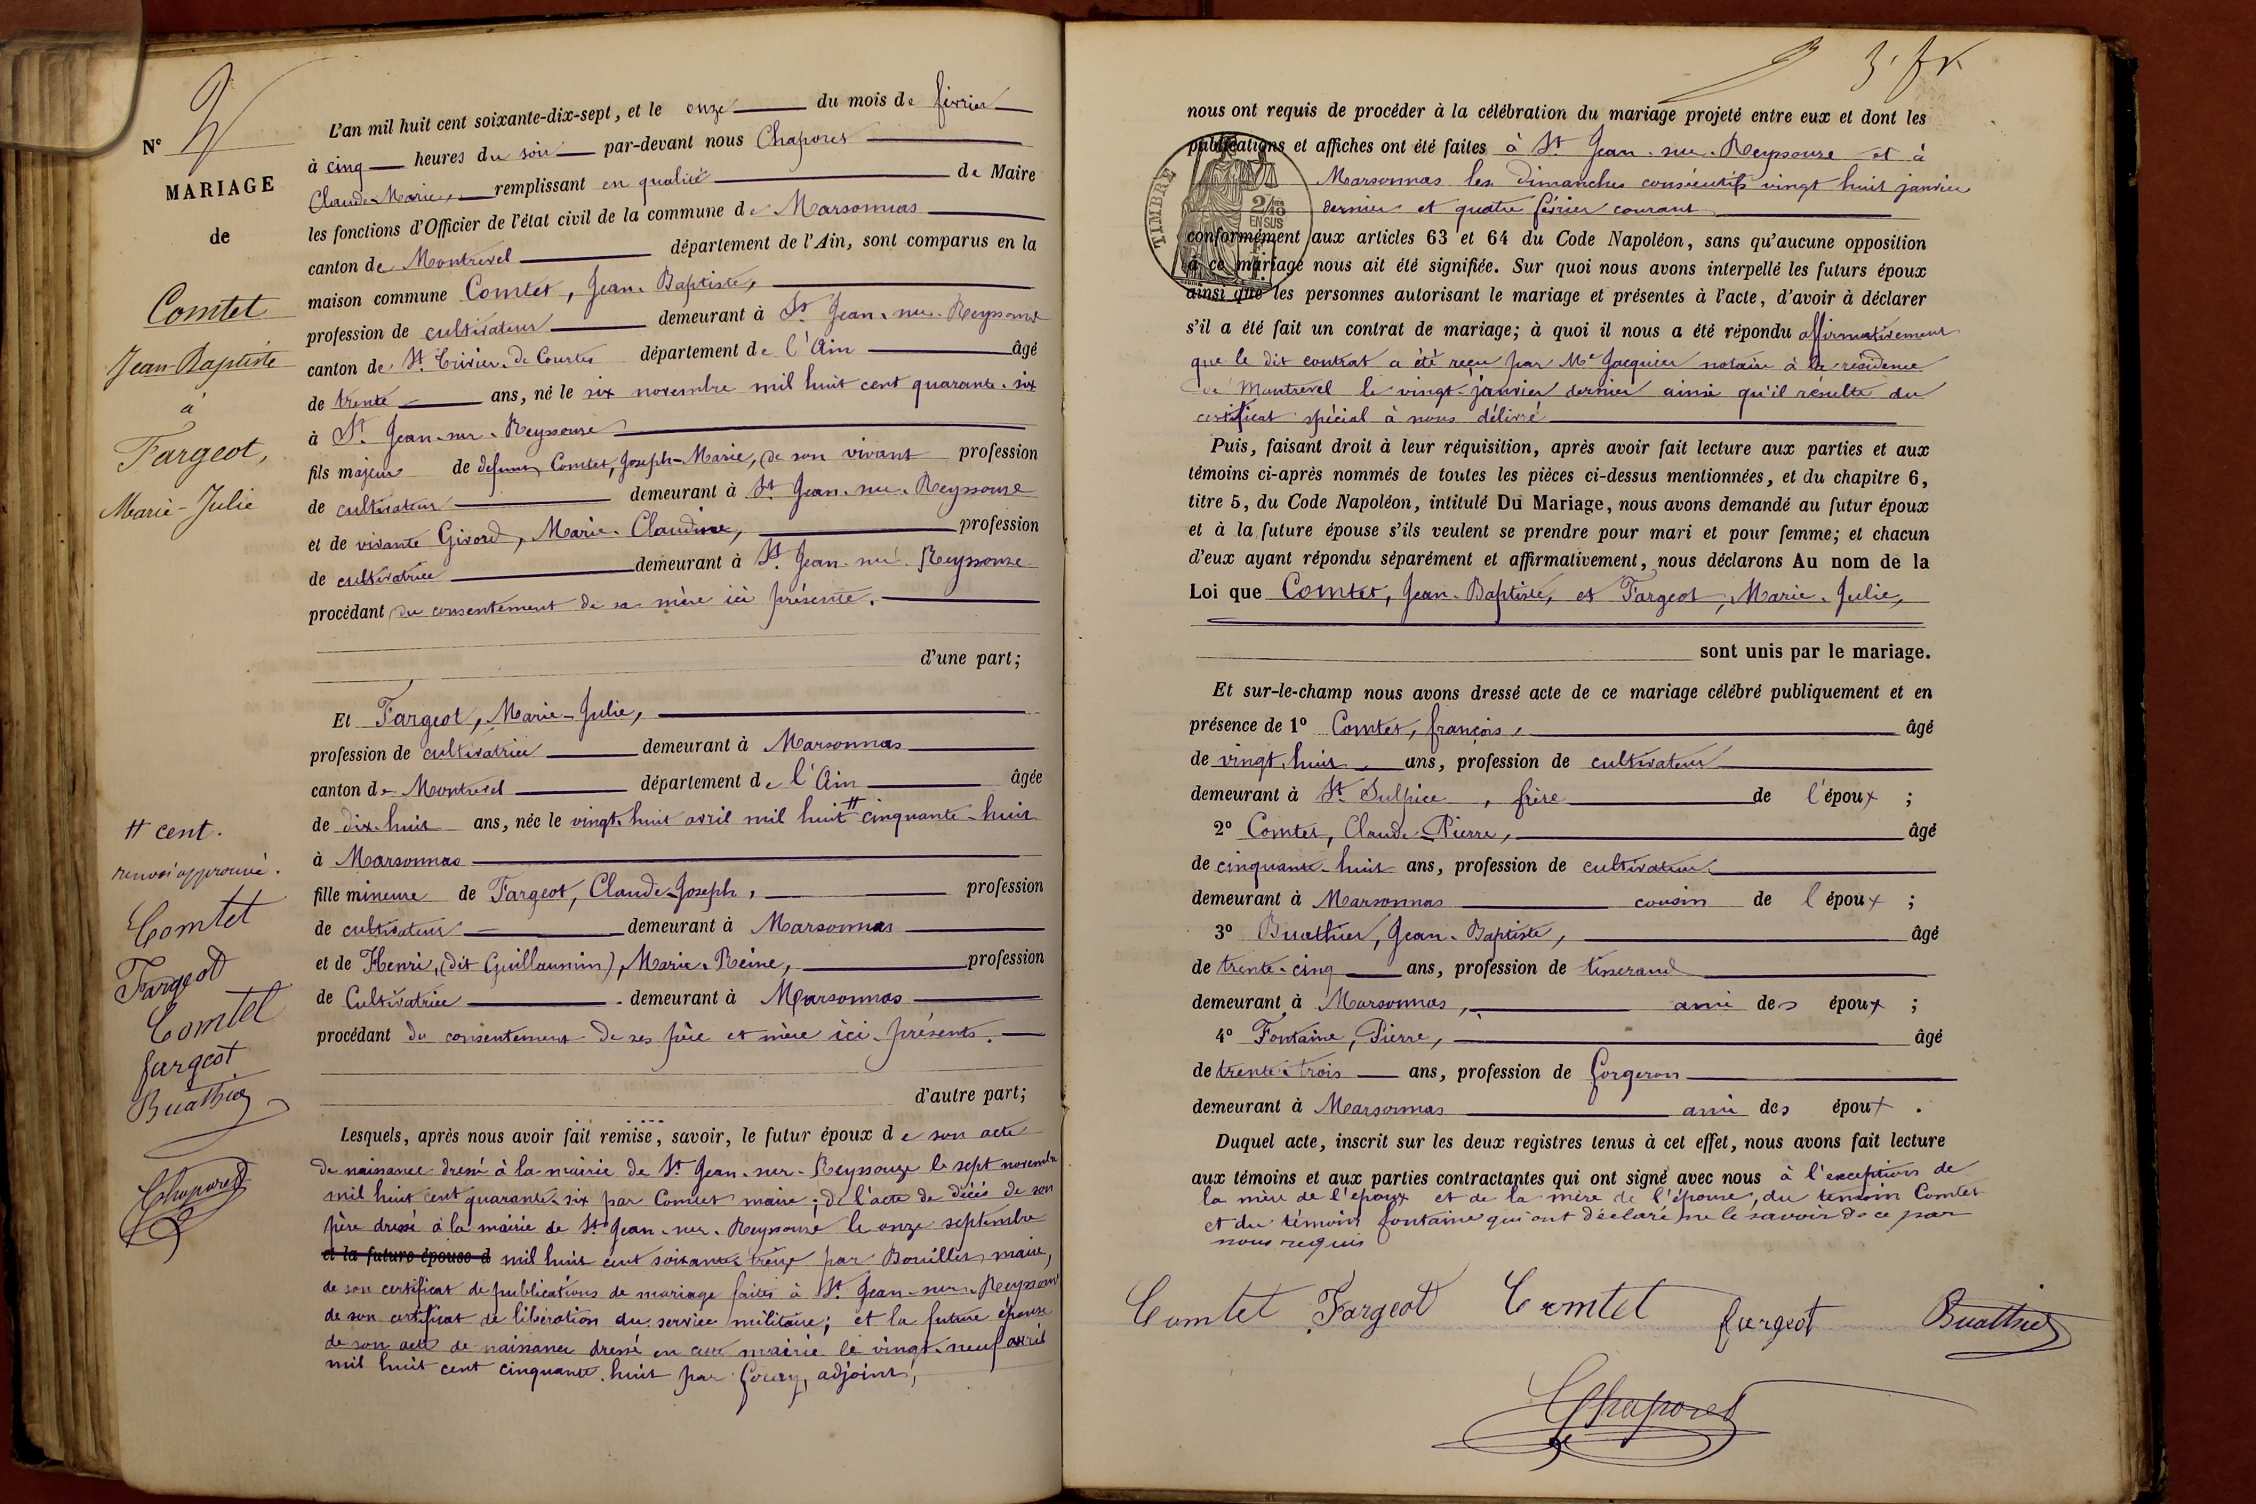 N° 2
MARIAGE
de
Comtet
Jean-Baptiste
à
Fargeot,
Marie-Julie
L'an mil huit cent soixante-dix-sept, et le onze du mois de février
à cinq heures du soir par-devant nous Chaporet
Claude-Marie, remplissant en qualité de Maire
les fonctions d'Officier de l'état civil de la commune de Marsonnas
canton de Montrevel département de l'Ain, sont comparus en la
maison commune Comtet, Jean-Baptiste,
profession de cultivateur demeurant à St Jean-sur-Reyssouze
canton de St Trivier-de-Courtes département de l'Ain âgé
de trente ans, né le six novembre mil huit cent quarante-six
à St Jean-sur-Reyssouze
fils majeur de defunt Comtet, Joseph-Marie, de son vivant profession
de cultivateur demeurant à St Jean-sur-Reyssouze
et de vivante Givord, Marie-Claudine, profession
de cultivatrice demeurant à St Jean-sur-Reyssouze
procédant du consentement de sa mère ici présente.
d'une part;
Et Fargeot, Marie-Julie,
profession de cultivatrice demeurant à Marsonnas
canton de Montrevel département de l'Ain âgée
de dix-huit ans, née le vingt-huit avril mil huit # cinquante-huit
à Marsonnas
fille mineure de Fargeot, Claude-Joseph, profession
de cultivateur demeurant à Marsonnas
et de Henri, (dit Guillaumin), Marie-Reine, profession
de Cultivatrice demeurant à Marsonnas
procédant du consentement de ses père et mère ici présents.
d'autre part;
Lesquels, après nous avoir fait remise, savoir, le futur époux de son acte
de naissance dressé à la mairie de St Jean-sur-Reyssouze le sept novembre
mil huit cent quarante-six par Comtet maire; de l'acte de décès de son
père dressé à la mairie de St Jean-sur-Reyssouze le onze septembre
et la future épouse d mil huit cent soixante-treize par Bouillet, maire,
de son certificat de publications de mariage faites à St Jean-sur-Reyssouze
de son certificat de libération du service militaire; et la future épouse
de son acte de naissance dressé en cette mairie le vingt-neuf avril
mil huit cent cinquante-huit par Goury, adjoint,
# cent.
renvoi approuvé.
Comtet
Fargeot
Comtet
fargeot
Buathier
Chaporet
3. fr
nous ont requis de procéder à la célébration du mariage projeté entre eux et dont les
publications et affiches ont été faites à St Jean-sur-Reyssouze et à
Marsonnas les dimanches consécutifs vingt huit janvier
dernier et quatre février courant
TIMBRE
2/10
EN SUS
conformément aux articles 63 et 64 du Code Napoléon, sans qu'aucune opposition
à ce mariage nous ait été signifiée. Sur quoi nous avons interpellé les futurs époux
ainsi que les personnes autorisant le mariage et présentes à l'acte, d'avoir à déclarer
s'il a été fait un contrat de mariage; à quoi il nous a été répondu affirmativement
que le dit contrat a été reçu par Me Jacquier notaire à la résidence
de Montrevel le vingt-janvier dernier ainsi qu'il résulte du
certificat spécial à nous délivré
Puis, faisant droit à leur réquisition, après avoir fait lecture aux parties et aux
témoins ci-après nommés de toutes les pièces ci-dessus mentionnées, et du chapitre 6,
titre 5, du Code Napoléon, intitulé Du Mariage, nous avons demandé au futur époux
et à la future épouse s'ils veulent se prendre pour mari et pour femme; et chacun
d'eux ayant répondu séparément et affirmativement, nous déclarons Au nom de la
Loi que Comtet, Jean-Baptiste, et Fargeot, Marie-Julie,
sont unis par le mariage.
Et sur-le-champ nous avons dressé acte de ce mariage célébré publiquement et en
présence de 1° Comtet, françois, âgé
de vingt-huit ans, profession de cultivateur
demeurant à St Sulpice, frère de l'époux;
2° Comtet, Claude-Pierre, âgé
de cinquante-huit ans, profession de cultivateur
demeurant à Marsonnas cousin de l'époux;
3° Buathier, Jean-Baptiste, âgé
de trente-cinq ans, profession de tisserand
demeurant à Marsonnas, ami des époux;
4° Fontaine, Pierre, âgé
de trente-trois ans, profession de forgeron
demeurant à Marsonnas ami des époux.
Duquel acte, inscrit sur les deux registres tenus à cet effet, nous avons fait lecture
aux témoins et aux parties contractantes qui ont signé avec nous à l'exception de
la mère de l'époux et de la mère de l'épouse, du témoin Comtet
et du témoin fontaine qui ont déclaré ne le savoir de ce par
nous requis
Comtet Fargeot Comtet fargeot Buathier
Chaporet